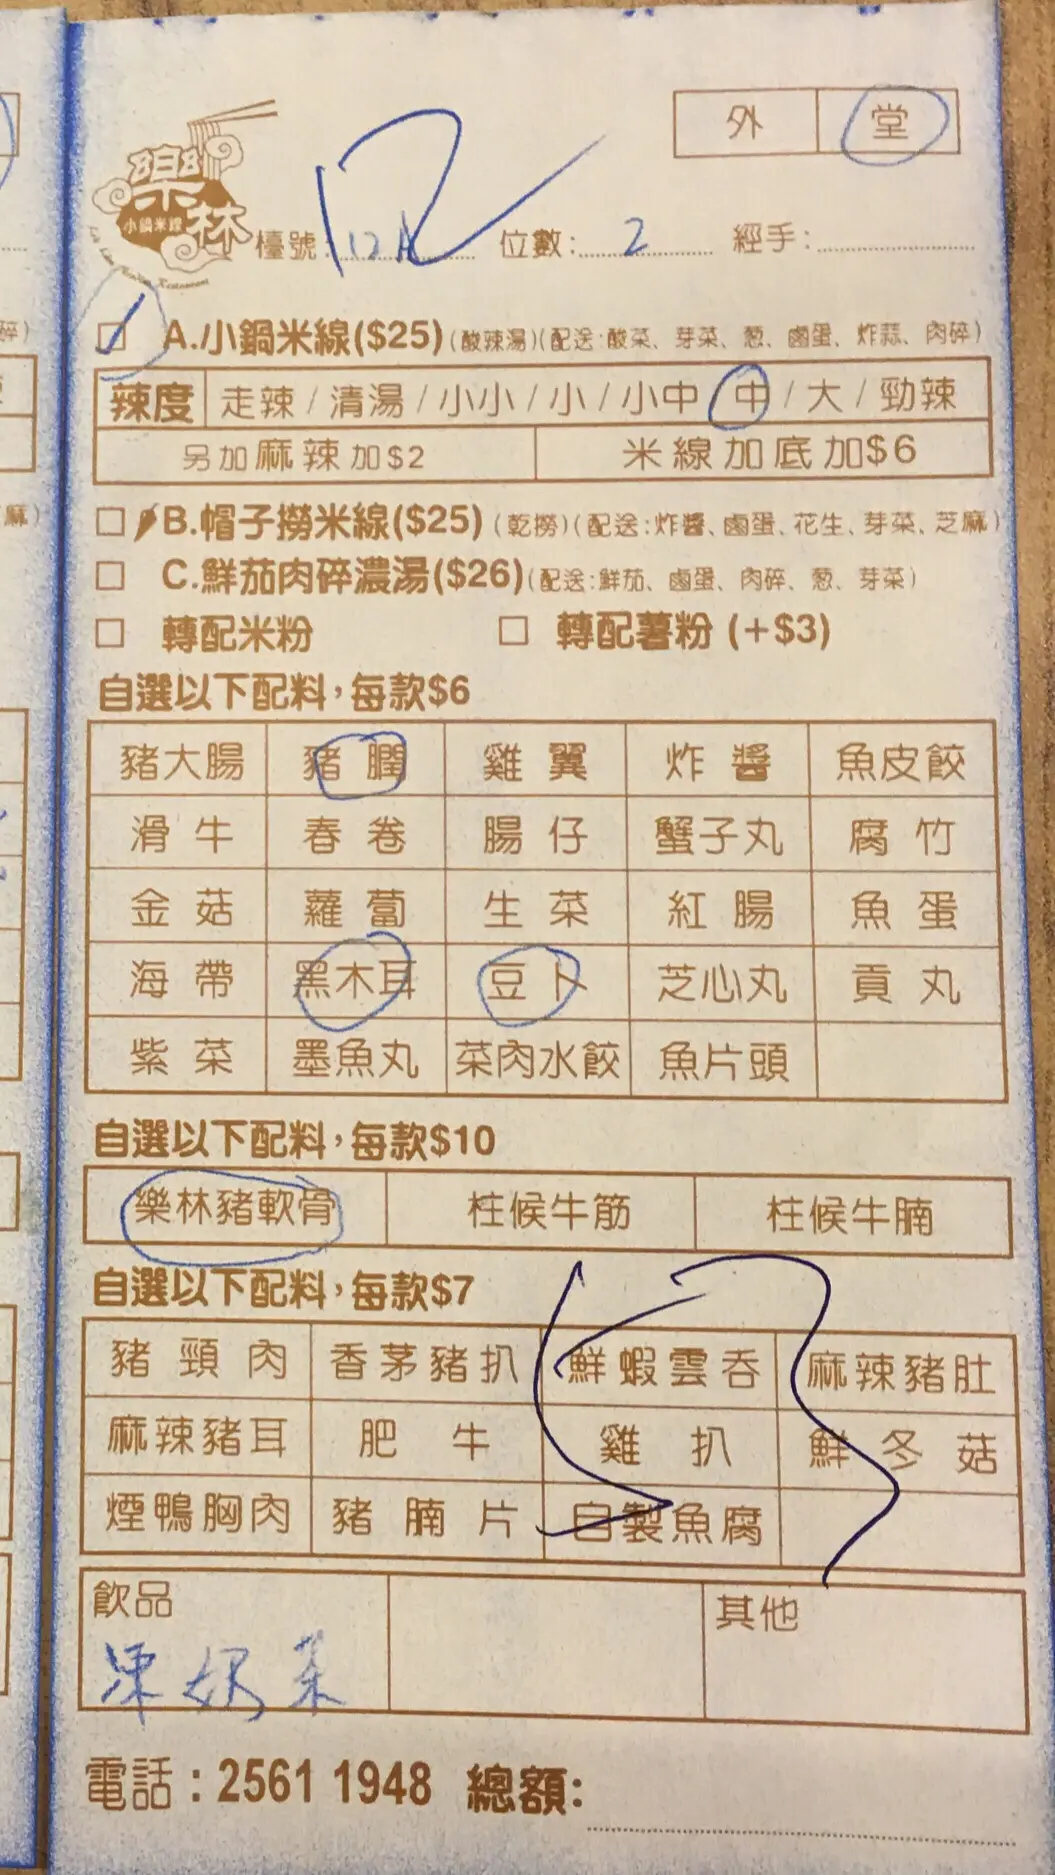 外 堂
樂林
小鍋米線
檯號: 12A 位數: 2 經手:
A.小鍋米線($25)(酸辣湯)(配送:酸菜、芽菜、葱、鹵蛋、炸蒜、肉碎)
辣度 走辣 / 清湯 / 小小 / 小 / 小中 中 / 大 / 勁辣
另加麻辣加$2 米線加底加$6
B.帽子撈米線($25) (乾撈)(配送:炸醬、鹵蛋、花生、芽菜、芝麻)
C.鮮茄肉碎濃湯($26)(配送:鮮茄、鹵蛋、肉碎、葱、芽菜)
轉配米粉 轉配薯粉 (+$3)
自選以下配料,每款$6
豬大腸 豬膶 雞翼 炸醬 魚皮餃
滑牛 春卷 腸仔 蟹子丸 腐竹
金菇 蘿蔔 生菜 紅腸 魚蛋
海帶 黑木耳 豆卜 芝心丸 貢丸
紫菜 墨魚丸 菜肉水餃 魚片頭
自選以下配料,每款$10
樂林豬軟骨 柱候牛筋 柱候牛腩
自選以下配料,每款$7
豬頸肉 香茅豬扒 鮮蝦雲吞 麻辣豬肚
麻辣豬耳 肥牛 雞扒 鮮冬菇
煙鴨胸肉 豬腩片 自製魚腐
飲品 其他
凍奶茶
電話 : 2561 1948 總額: